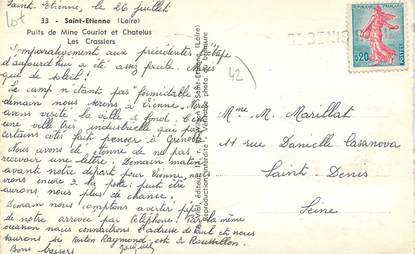 lot
Saint-Etienne, le 26 juillet.
33 - Saint-Etienne (Loire)
Puits de Mine Couriot et Chatelus
Les Crassiers
Comparativement aux précédentes l'étape
d'aujourd'hui a été assez facile. Mais
que de soleil!
Le camp n'étant pas "formidable"
demain nous serons à Vienne. Nous
avons visité la ville à fond. C'est
une ville très industrielle qui par
certains côté fait penser à Grenoble
Nous avons été étonné de ne pas
recevoir une lettre. Demain matin
avant notre départ pour Vienne, nous
avons encore à la poste peut être
aurons nous plus de chance.
Demain nous comptons avertir
de notre arrivée par téléphone. Par la même
occasion nous connaîtrons l'adresse de Paul et nous
saurons si tonton Raymond est à Roussillon.
Bons baisers Jacques
42
0,20
Mme M. Marillat
11 rue Danielle Casanova
Saint-Denis
Seine